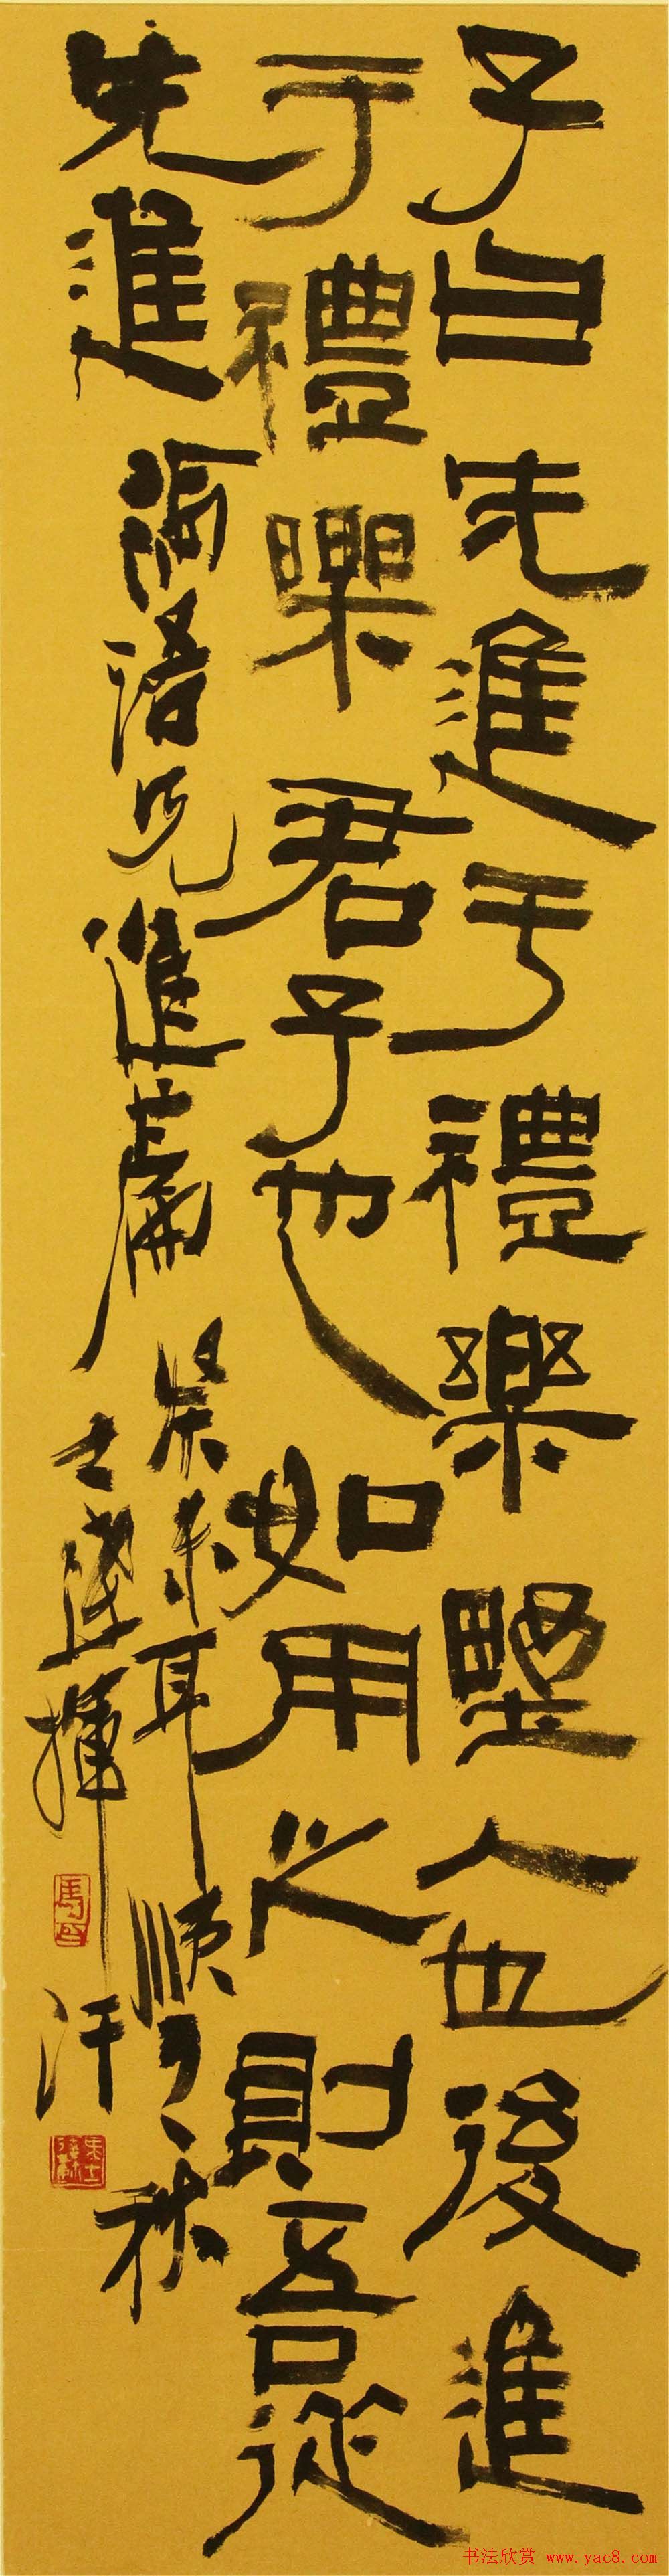 子曰先進于禮樂野人也後進
于禮樂君子也如用之則吾從
先進
論語先進篇
癸未耳順之秋
士達揮汗
書法欣赏 www.yac8.com